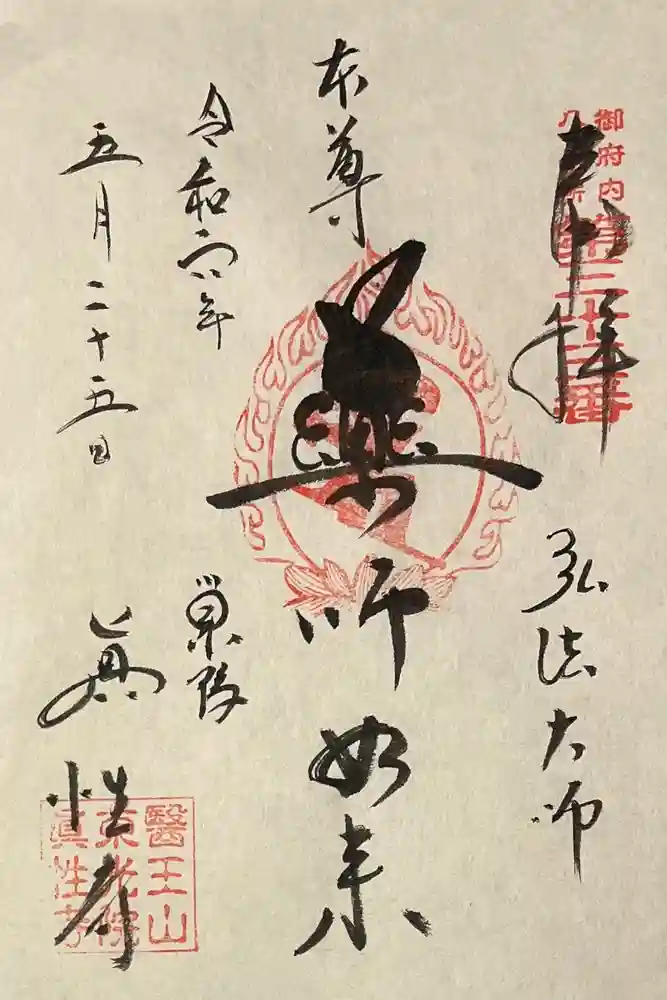 御府内
八十八ヶ所
第三十三番
奉拝
弘法大師
本尊
藥師如来
令和元年
巣鴨
五月二十五日
眞性寺
醫王山
東光院
眞性寺